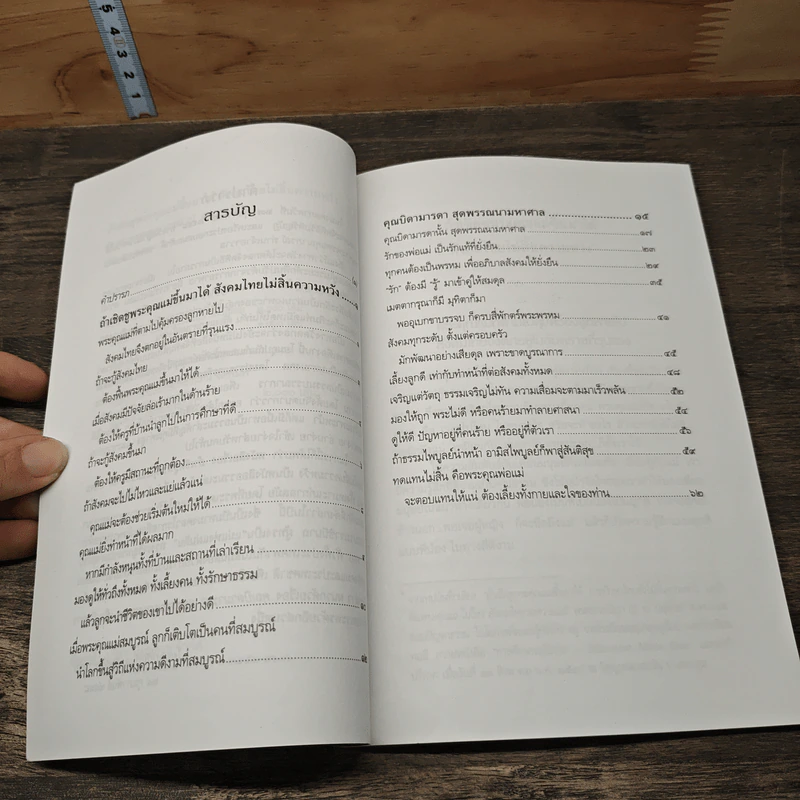 5 4 3 2 1
สารบัญ
คำปรารภ
ถ้าเชิดชูพระคุณแม่ขึ้นมาได้ สังคมไทยไม่สิ้นความหวัง
พระคุณแม่ที่ตามไปคุ้มครองลูกหายไป
สังคมไทยจึงตกอยู่ในอันตรายที่รุนแรง
ถ้าจะกู้สังคมไทย
ต้องฟื้นพระคุณแม่ขึ้นมาให้ได้
เมื่อสังคมมีปัจจัยล่อเร้ามากในด้านร้าย
ต้องให้ครูที่บ้านนำลูกไปในการศึกษาที่ดี
ถ้าจะกู้สังคมขึ้นมา
ต้องให้ครูมีสถานะที่ถูกต้อง
ถ้าสังคมจะไปไม่ไหวและแย่แล้วแน่
คุณแม่จะต้องช่วยเริ่มต้นใหม่ให้ได้
คุณแม่ยิ่งทำหน้าที่ได้ผลมาก
หากมีกำลังหนุนทั้งที่บ้านและสถานที่เล่าเรียน
มองดูให้ทั่วถึงทั้งหมด ทั้งเลี้ยงคน ทั้งรักษาธรรม
แล้วลูกจะนำชีวิตของเขาไปได้อย่างดี ๑๐
เมื่อพระคุณแม่สมบูรณ์ ลูกก็เติบโตเป็นคนที่สมบูรณ์
นำโลกขึ้นสู่วิถีแห่งความดีงามที่สมบูรณ์ ๑๒
คุณบิดามารดา สุดพรรณนามหาศาล ๑๕
คุณบิดามารดานั้น สุดพรรณนามหาศาล ๑๗
รักของพ่อแม่ เป็นรักแท้ที่ยั่งยืน ๒๓
ทุกคนต้องเป็นพรหม เพื่ออภิบาลสังคมให้ยั่งยืน ๒๙
"รัก" ต้องมี "รู้" มาเข้าคู่ให้สมดุล ๓๕
เมตตากรุณาก็มี มุทิตาก็มา
พออุเบกขาบรรจบ ก็ครบสี่พักตร์พระพรหม ๔๑
สังคมทุกระดับ ตั้งแต่ครอบครัว
มักพัฒนาอย่างเสียดุล เพราะขาดบูรณาการ ๔๕
เลี้ยงลูกดี เท่ากับทำหน้าที่ต่อสังคมทั้งหมด ๔๘
เจริญแต่วัตถุ ธรรมเจริญไม่ทัน ความเสื่อมจะตามมาเร็วพลัน ๕๒
มองให้ถูก พระไม่ดี หรือคนร้ายมาทำลายศาสนา ๕๔
ดูให้ดี ปัญหาอยู่ที่คนร้าย หรืออยู่ที่ตัวเรา ๕๖
ถ้าธรรมไพบูลย์นำหน้า อามิสไพบูลย์ก็พาสู่สันติสุข ๕๙
ทดแทนไม่สิ้น คือพระคุณพ่อแม่
จะตอบแทนให้แน่ ต้องเลี้ยงทั้งกายและใจของท่าน ๖๒